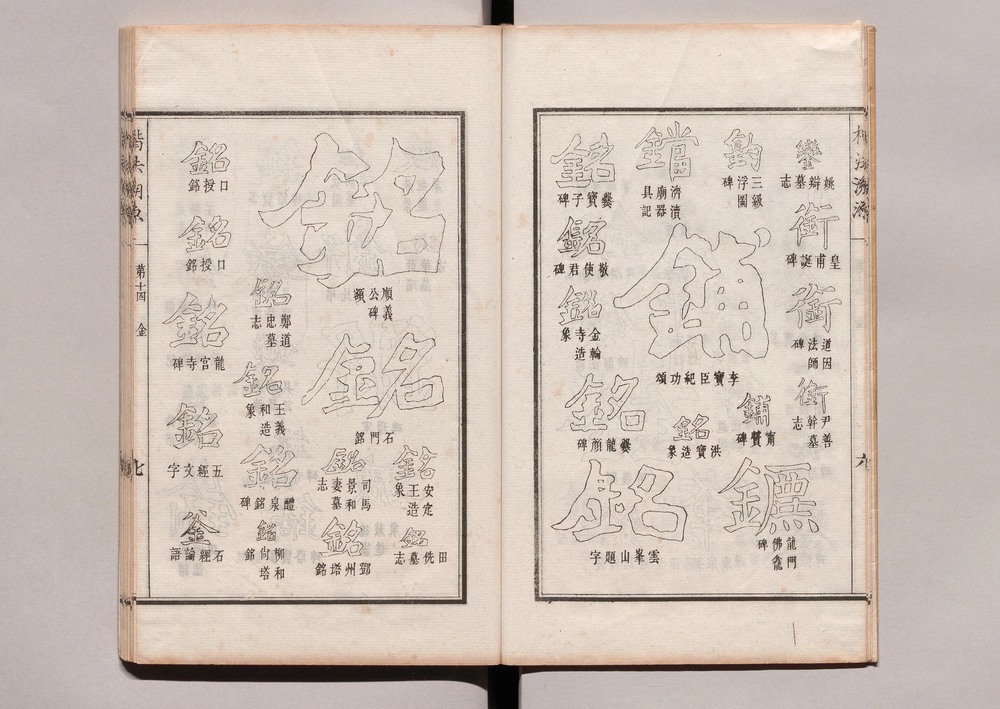 鑾
姚辯墓志
銜
皇甫誕碑
銜
道因法師碑
銜
尹善幹墓志
三級浮圖碑
鐺
濟瀆廟器具記
鋪
李寶臣紀功頌
鋪
甯贙碑
鑣
龍門佛龕碑
銘
洪寶造象
銘
爨寶子碑
銘
敬使君碑
銘
金輪寺造象
銘
爨龍顏碑
銘
雲峯山題字
六
銘
順義公碑額
銘
石門銘
銘
安定王造象
銘
田侁墓志
銘
司馬景和妻墓志
銘
鄧州塔銘
銘
鄭道忠墓志
銘
王義和造象
銘
醴泉銘碑
銘
柳和尚塔銘
銘
口授銘
銘
口授銘
銘
龍宮寺碑
銘
五經文字
釜
石經論語
第十四
金
七